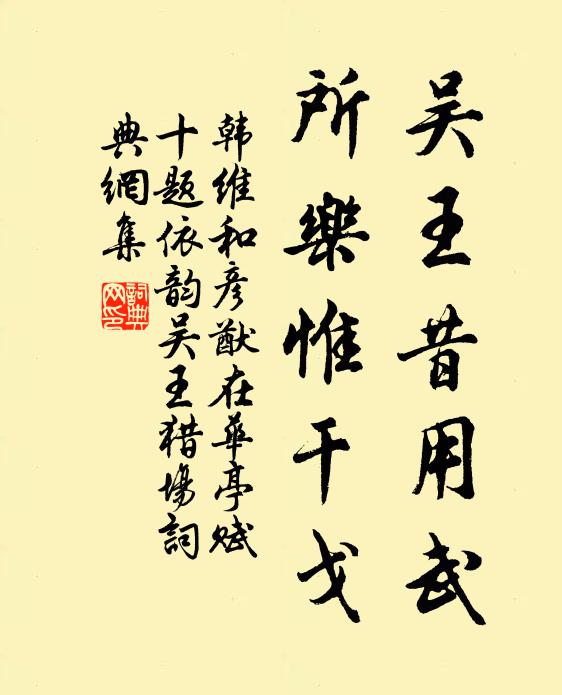 吴王昔用武
所樂惟干戈
韩維和彦猷在華亭赋
十题依韵吴王猎場詞
典網集
詞典
网印